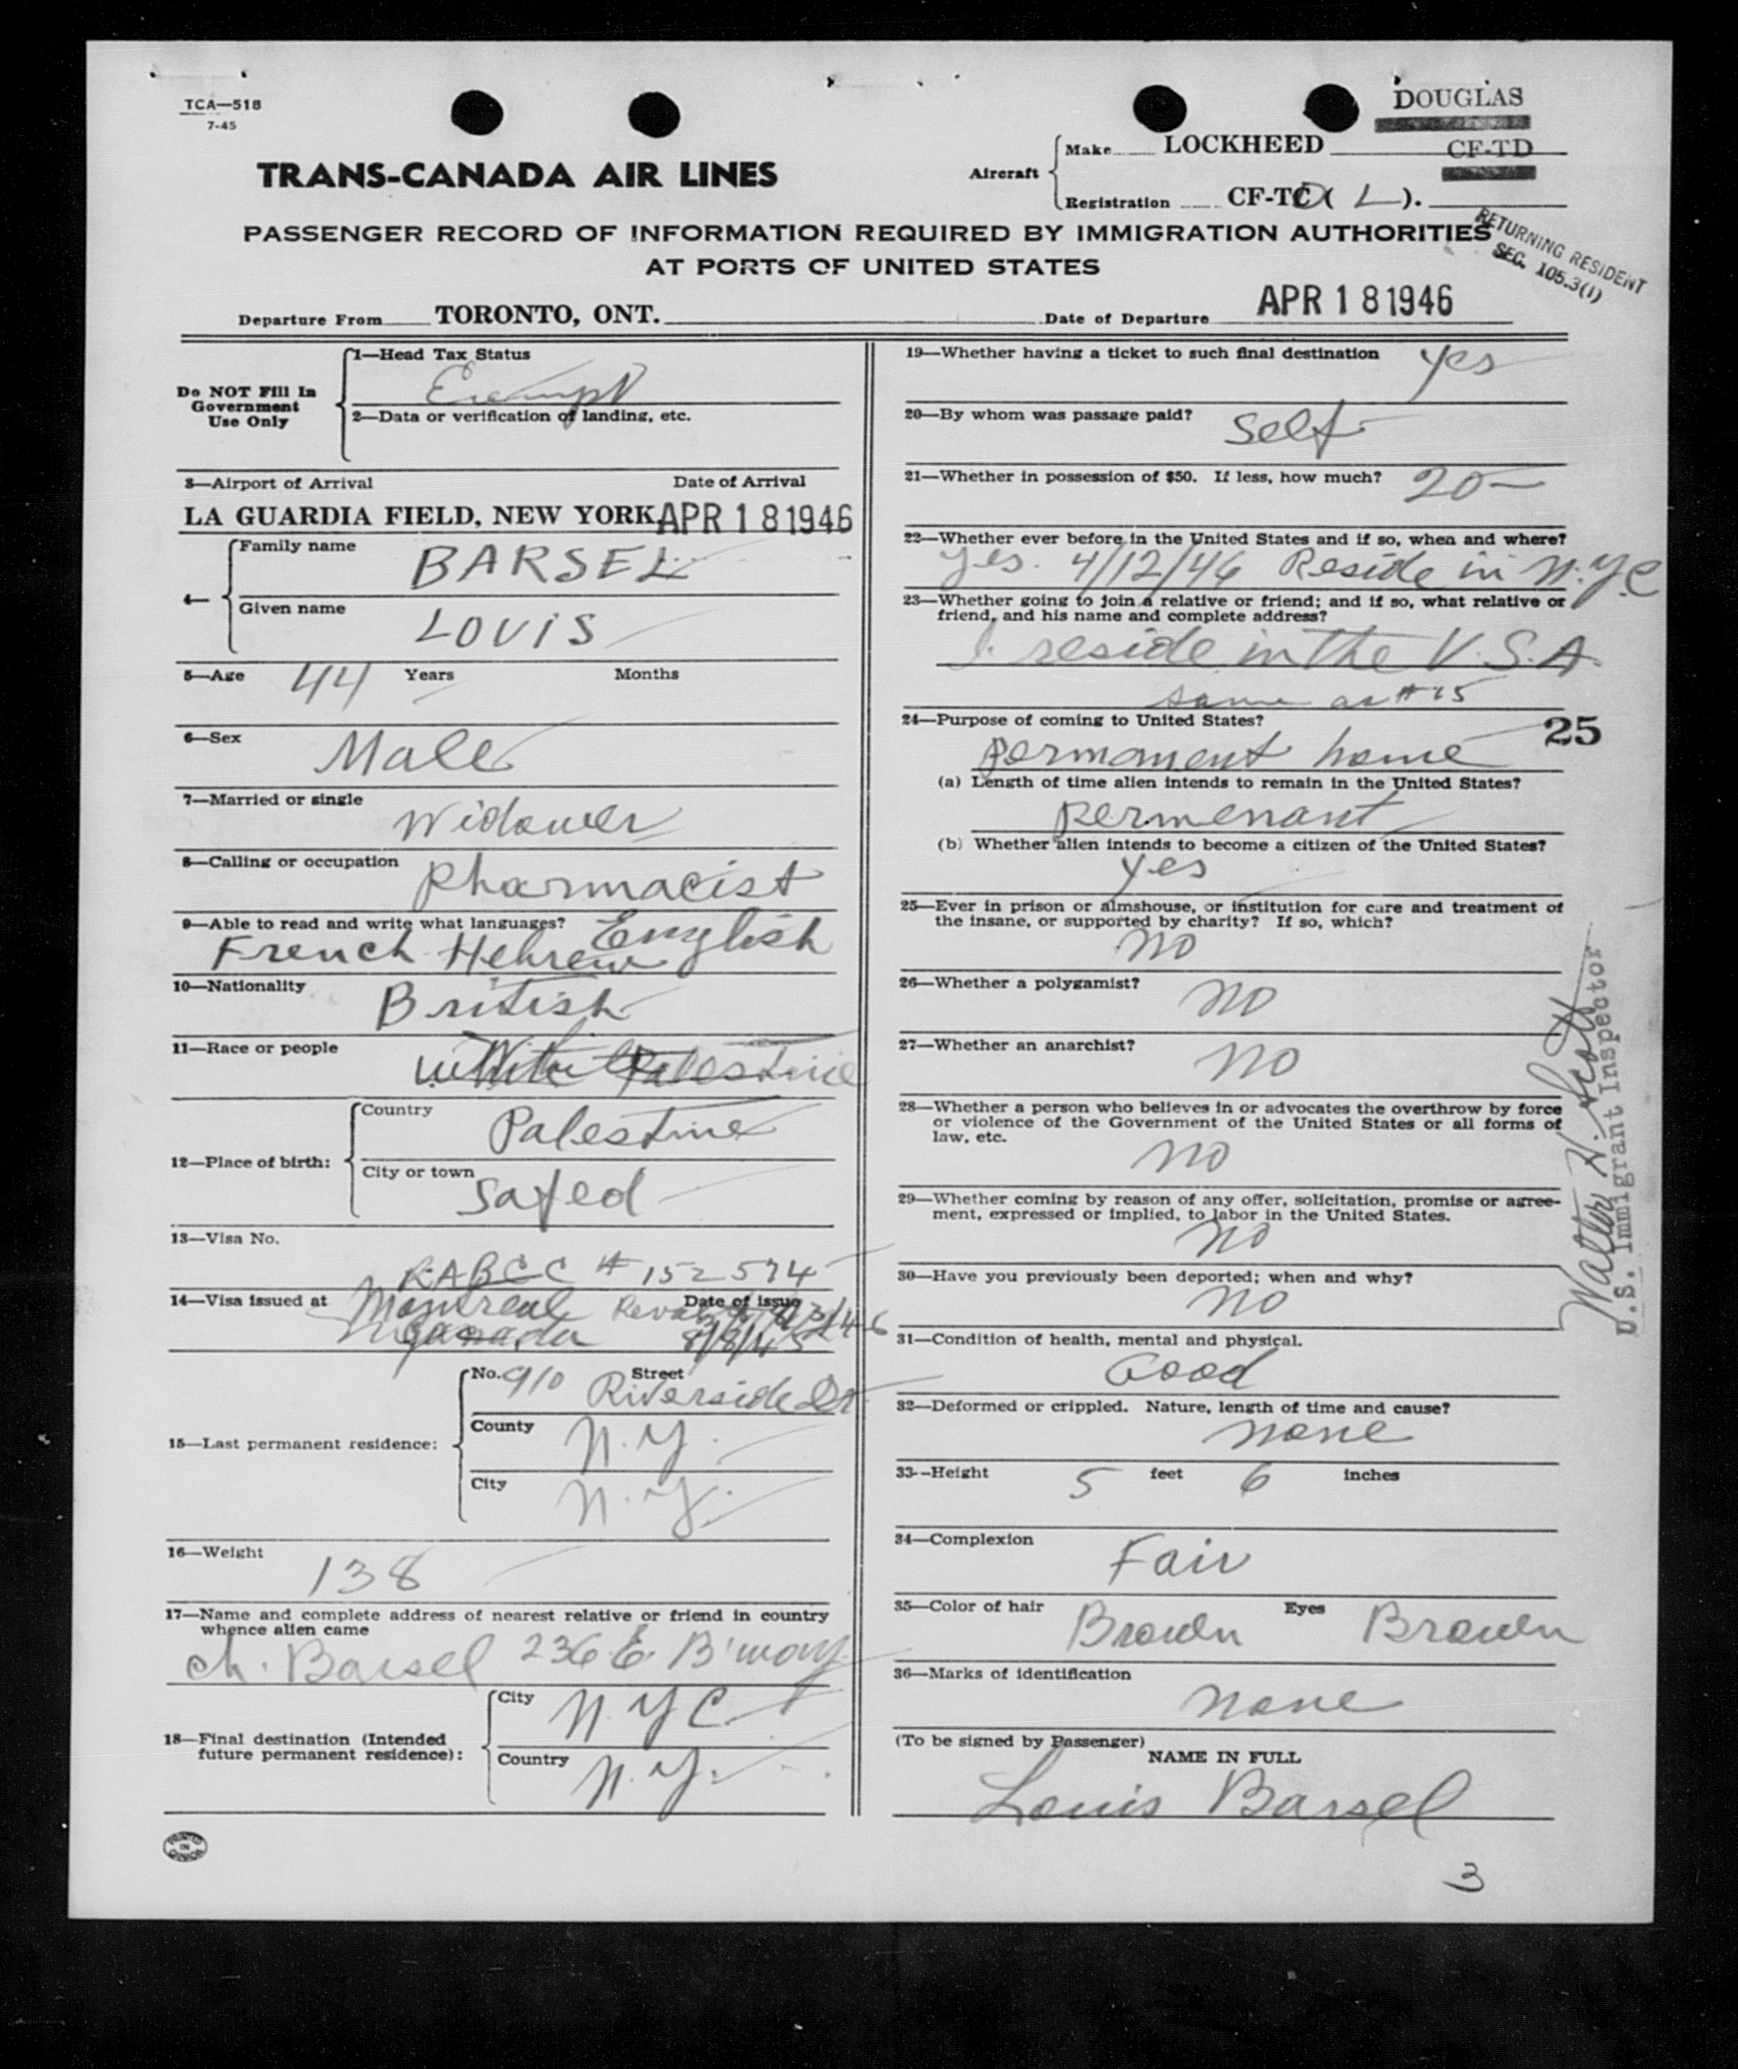 TCA—518
7-45
DOUGLAS
TRANS-CANADA AIR LINES
Aircraft
Make LOCKHEED
CF-TD
Registration CF-TC ( L ).
PASSENGER RECORD OF INFORMATION REQUIRED BY IMMIGRATION AUTHORITIES
AT PORTS OF UNITED STATES
RETURNING RESIDENT
SEC. 105.3(1)
Departure From TORONTO, ONT. Date of Departure APR 18 1946
Do NOT Fill In
Government
Use Only
1—Head Tax Status
Exempt
2—Data or verification of landing, etc.
3—Airport of Arrival Date of Arrival
LA GUARDIA FIELD, NEW YORK APR 18 1946
4—
Family name BARSEL
Given name LOUIS
5—Age 44 Years Months
6—Sex Male
7—Married or single Widower
8—Calling or occupation pharmacist
9—Able to read and write what languages? English
French Hebrew
10—Nationality British
11—Race or people White Palestine
12—Place of birth:
Country Palestine
City or town Safed
13—Visa No.
RABCC # 152574
14—Visa issued at Montreal Date of issue
Canada 8/8/45
15—Last permanent residence:
No. 910 Street Riverside Dr
County N.Y.
City N.Y.
16—Weight 138
17—Name and complete address of nearest relative or friend in country
whence alien came
Ch. Barsel 236 E. B'way
18—Final destination (Intended
future permanent residence):
City N.Y.C
Country N.Y.
PRINTED
IN
CANADA
19—Whether having a ticket to such final destination yes
20—By whom was passage paid? Self
21—Whether in possession of $50. If less, how much? 20—
22—Whether ever before in the United States and if so, when and where?
yes. 4/12/46 Reside in N.Y.C
23—Whether going to join a relative or friend; and if so, what relative or
friend, and his name and complete address?
I reside in the U.S.A.
same as #15
24—Purpose of coming to United States? 25
permanent home
(a) Length of time alien intends to remain in the United States?
permenant
(b) Whether alien intends to become a citizen of the United States?
yes
25—Ever in prison or almshouse, or institution for care and treatment of
the insane, or supported by charity? If so, which?
no
26—Whether a polygamist? no
27—Whether an anarchist? no
28—Whether a person who believes in or advocates the overthrow by force
or violence of the Government of the United States or all forms of
law, etc.
no
29—Whether coming by reason of any offer, solicitation, promise or agree-
ment, expressed or implied, to labor in the United States.
no
30—Have you previously been deported; when and why?
no
31—Condition of health, mental and physical.
Good
32—Deformed or crippled. Nature, length of time and cause?
none
33—Height 5 feet 6 inches
34—Complexion Fair
35—Color of hair Brown Eyes Brown
36—Marks of identification
none
(To be signed by Passenger)
NAME IN FULL
Louis Barsel
3
Walter H. Scott
U.S. Immigrant Inspector